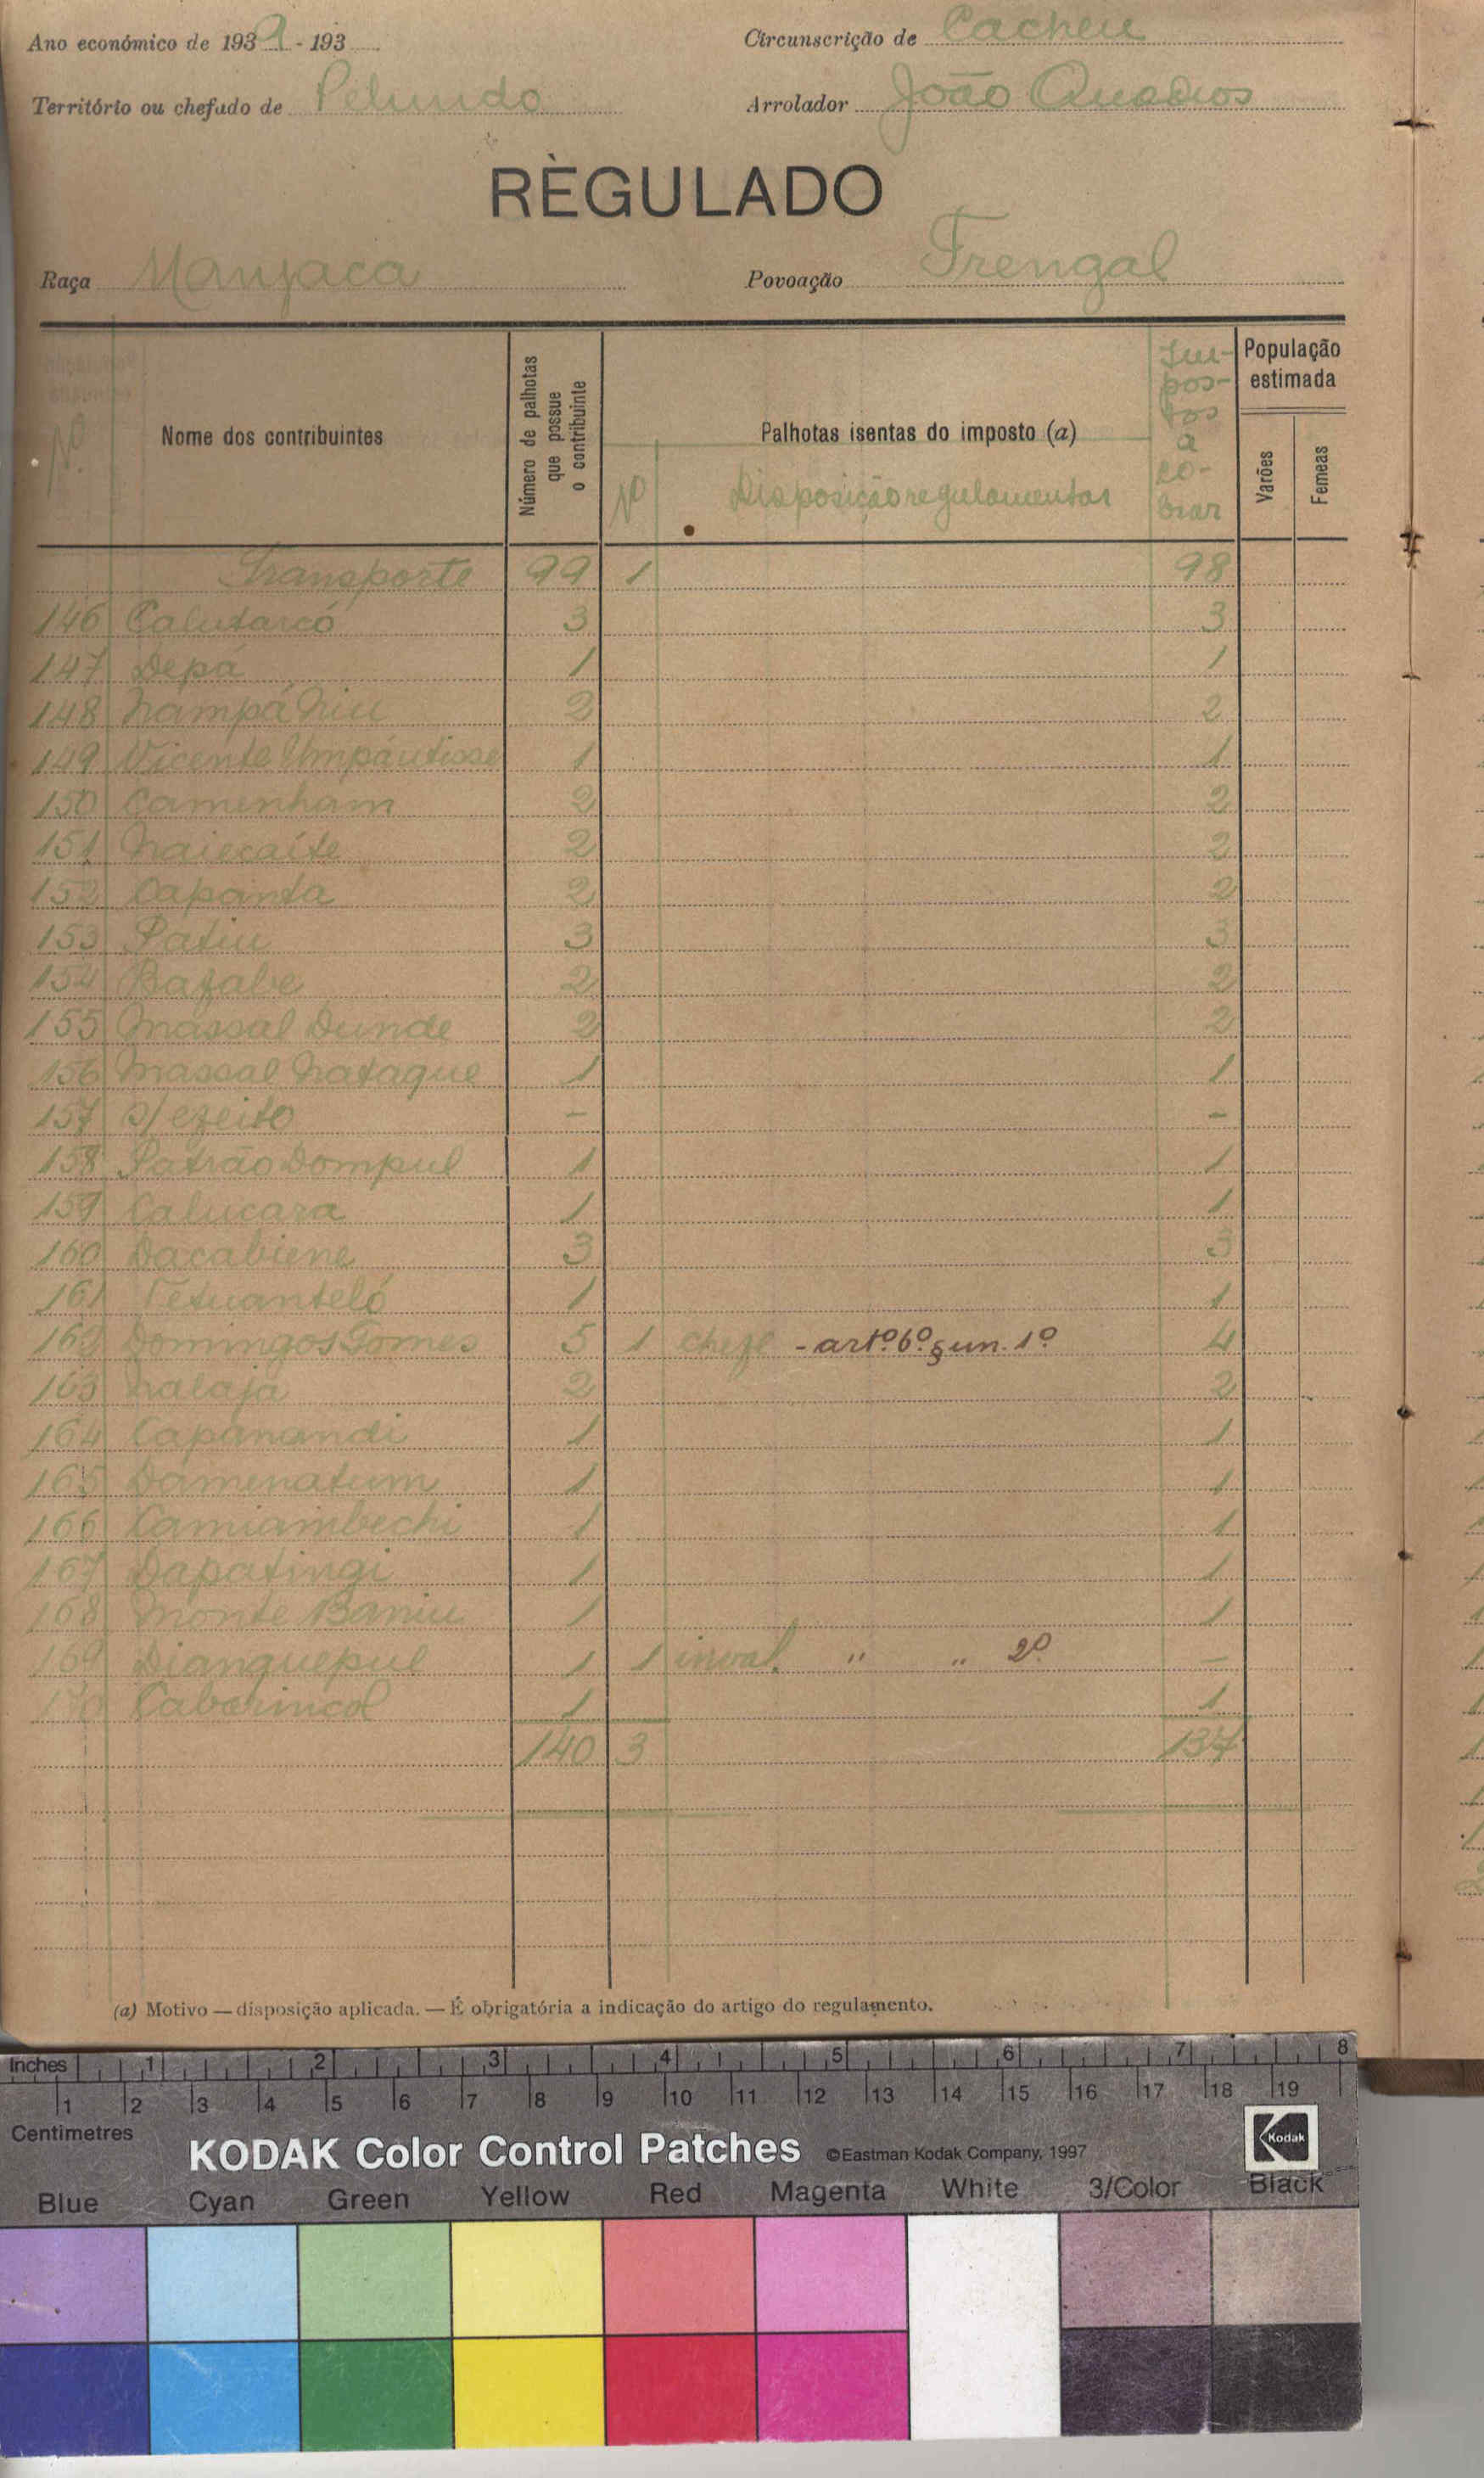 Ano económico de 1939-193
Circunscrição de Cacheu
Território ou chefado de Pelundo
Arrolador João Quadros
RÈGULADO
Raça Manjaca
Povoação Frengal
Nº
Nome dos contribuintes
Número de palhotas que possue o contribuinte
Palhotas isentas do imposto (a)
Nº Disposição regulamentar
Impostos a cobrar
População estimada
Varões
Femeas
Transporte 99 1 98
146 Calutarcó 3 3
147 Depá 1 1
148 Nampá Niu 2 2
149 Vicente Umpáutisse 1 1
150 Camenham 2 2
151 Naiecaíte 2 2
152 Capanta 2 2
153 Patiu 3 3
154 Bafabe 2 2
155 Massal Dunde 2 2
156 Massal Nataque 1 1
157 s/ efeito - -
158 Patrão Dompul 1 1
159 Calucara 1 1
160 Dacabiene 3 3
161 Tetuanteló 1 1
162 Domingos Gomes 5 1 chefe - artº. 6º. § un. 1º 4
163 Nalaja 2 2
164 Capanandi 1 1
165 Damenatum 1 1
166 Camiambechi 1 1
167 Dapatingi 1 1
168 Monte Baniu 1 1
169 Dianguepul 1 1 inval. " " 2º -
170 Caberincol 1 1
140 3 137
(a) Motivo — disposição aplicada. — É obrigatória a indicação do artigo do regulamento.
Inches 1 2 3 4 5 6 7 8
1 2 3 4 5 6 7 8 9 10 11 12 13 14 15 16 17 18 19
Centimetres
KODAK Color Control Patches ©Eastman Kodak Company, 1997
Kodak
Blue Cyan Green Yellow Red Magenta White 3/Color Black